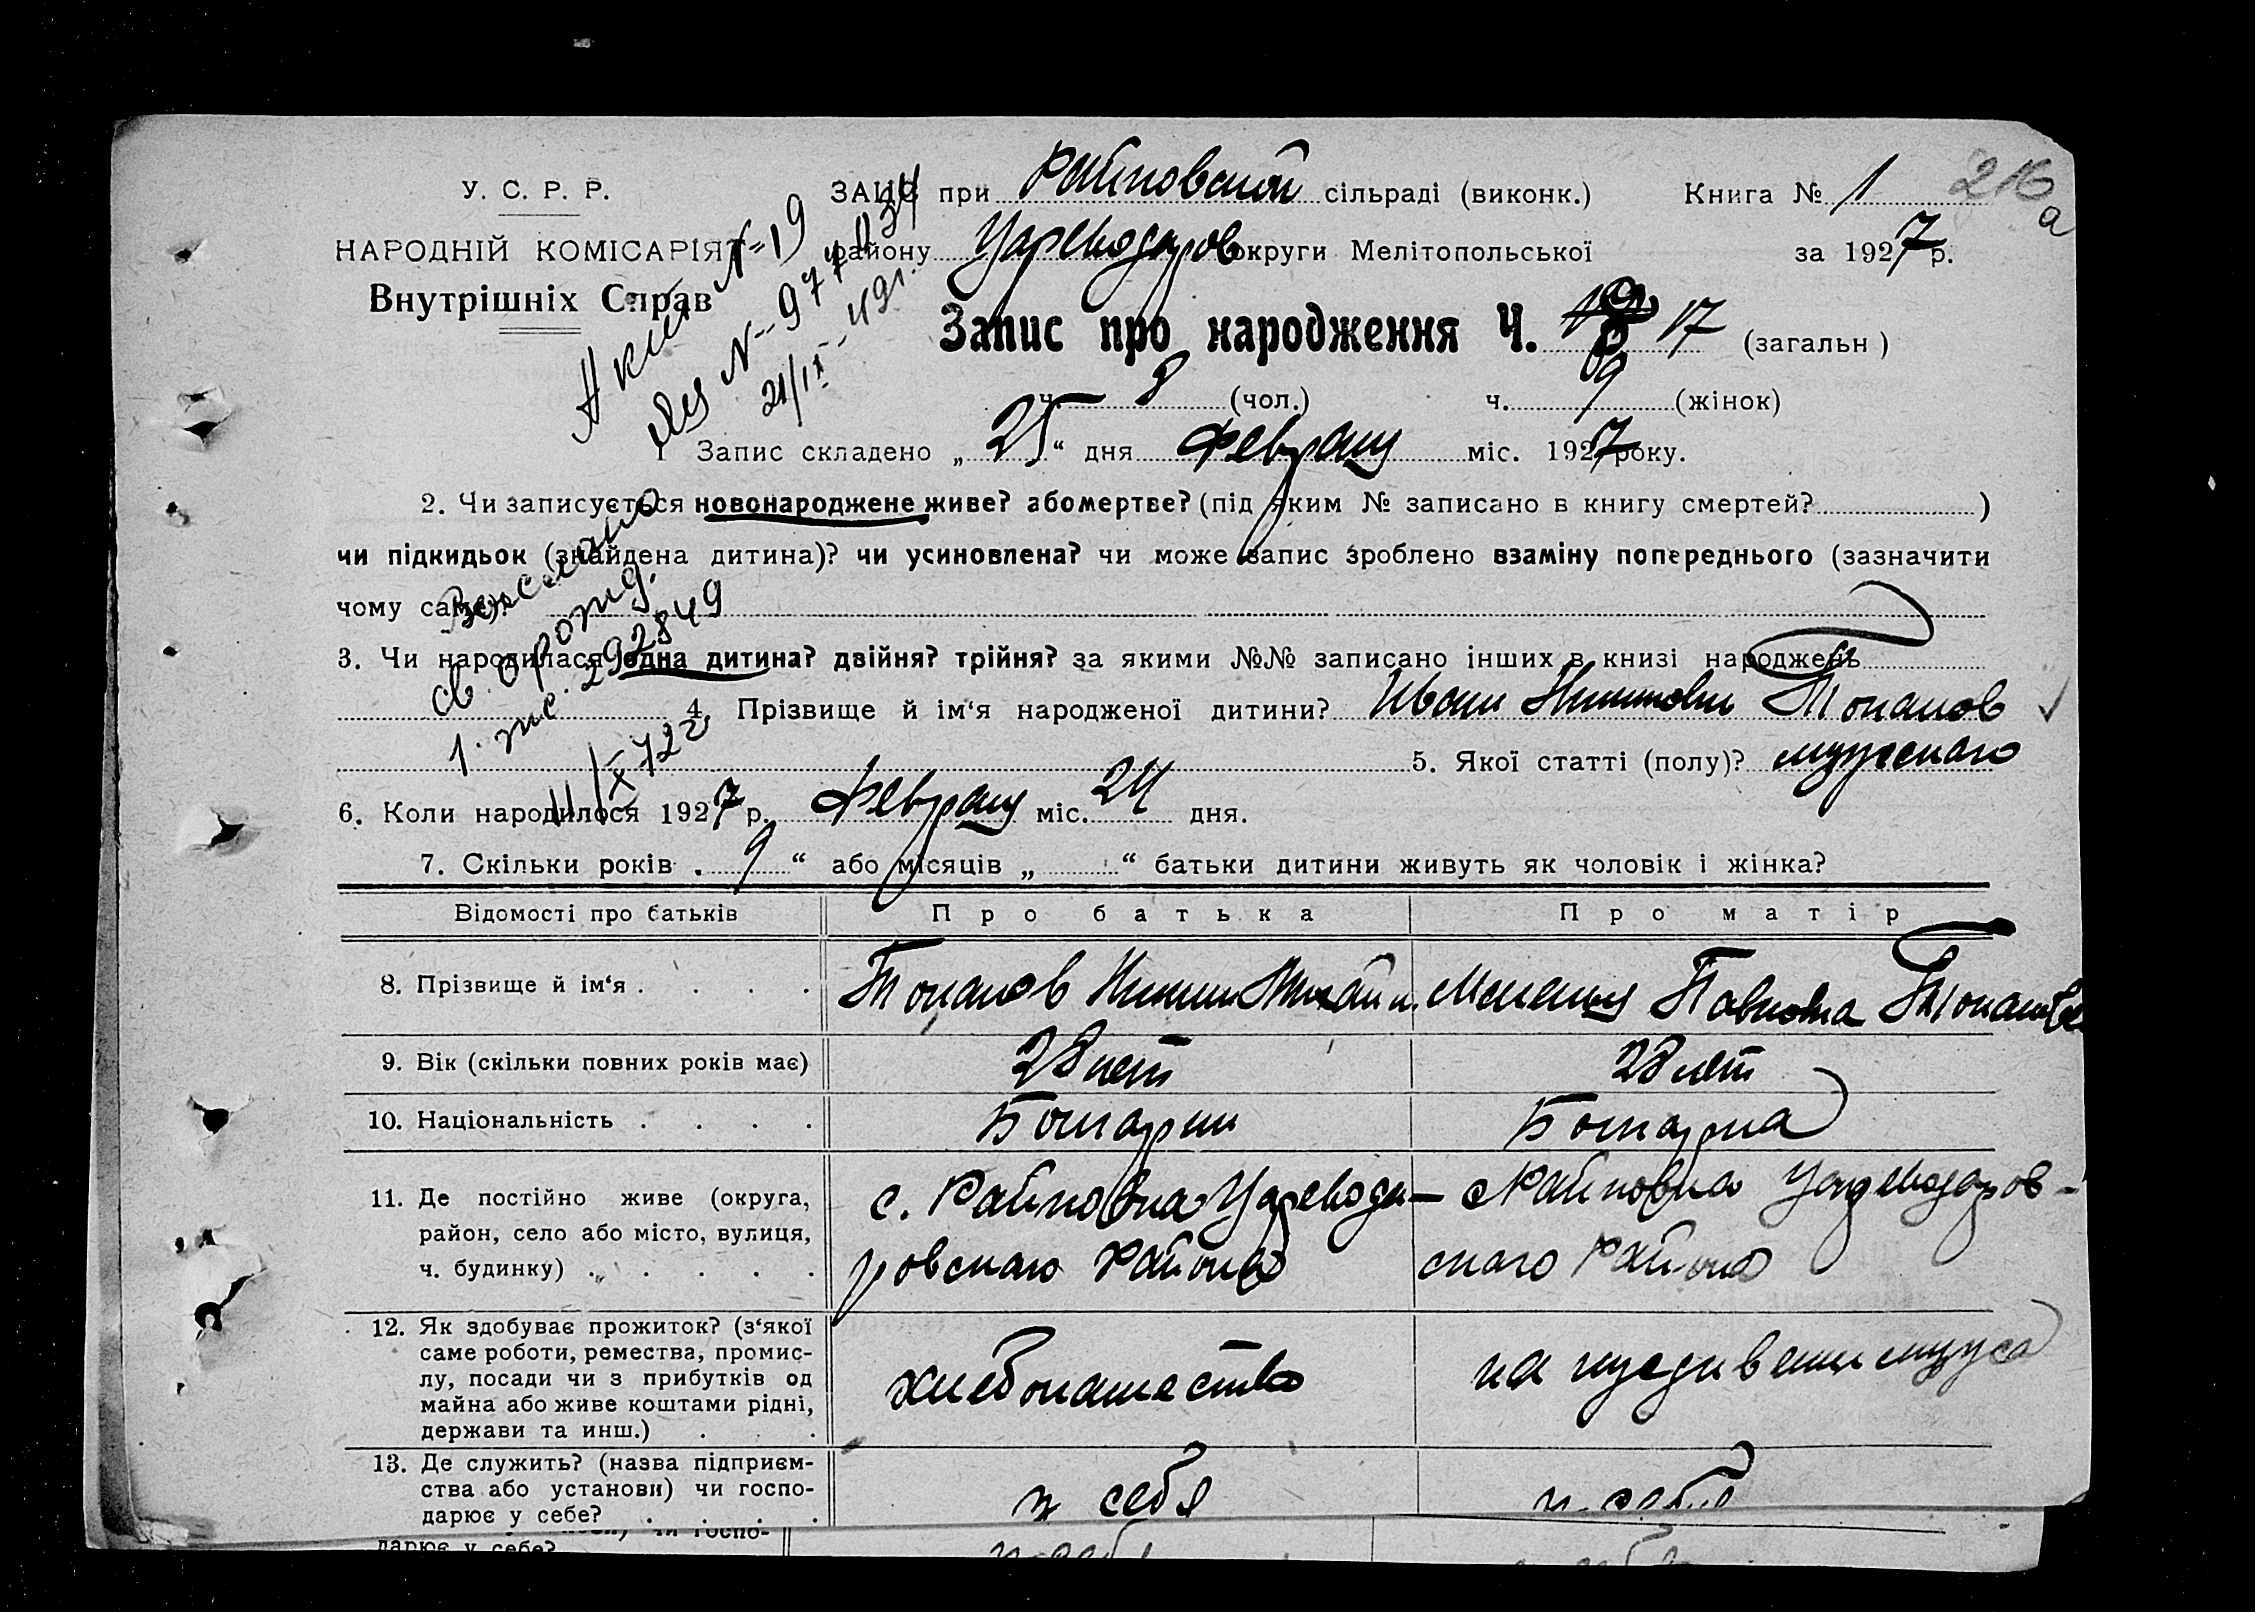 216
а
У. С. Р. Р.
ЗАЦС при Райновской сільраді (виконк.) Книга № 1
НАРОДНІЙ КОМІСАРІЯТ
району Цареводаров округи Мелітопольської за 1927 р.
Внутрішніх Справ
Запис про народження Ч. 17 (загальн )
ч. 8 (чол.) ч. 9 (жінок)
№ 19
21/IX-49г.
Запис складено „25“ дня февраля міс. 1927 року.
2. Чи записується новонароджене живе? або мертве? (під яким № записано в книгу смертей? )
чи підкидьок (знайдена дитина)? чи усиновлена? чи може запис зроблено взаміну попереднього (зазначити
чому саме)?
св. о рожд.
292849
11/X 72г.
3. Чи народилася одна дитина? двійня? трійня? за якими №№ записано інших в книзі народжень
4. Прізвище й ім‘я народженої дитини? Иван Топалов
5. Якої статті (полу)? мужского
6. Коли народилося 1927 р. февраля міс. 24 дня.
7. Скільки років „9“ або місяців „ “ батьки дитини живуть як чоловік і жінка?
Відомості про батьків Про батька Про матір
8. Прізвище й ім‘я . . . . Топалов Павловна Топалова
9. Вік (скільки повних років має) 28 лет 28 лет
10. Національність . . . . Болгарин Болгарка
11. Де постійно живе (округа, с. Райновка Царевода- с Райновка Цареводаров-
район, село або місто, вулиця, ровского района ского района
ч. будинку) . . . . .
12. Як здобуває прожиток? (з‘якої
саме роботи, ремества, промис-
лу, посади чи з прибутків од хлебопашество на иждивении мужа
майна або живе коштами рідні,
держави та инш.) . . .
13. Де служить? (назва підприєм-
ства або установи) чи госпо- у себя у себя
дарює у себе? . . . .
чи госпо-
дарює у себе?